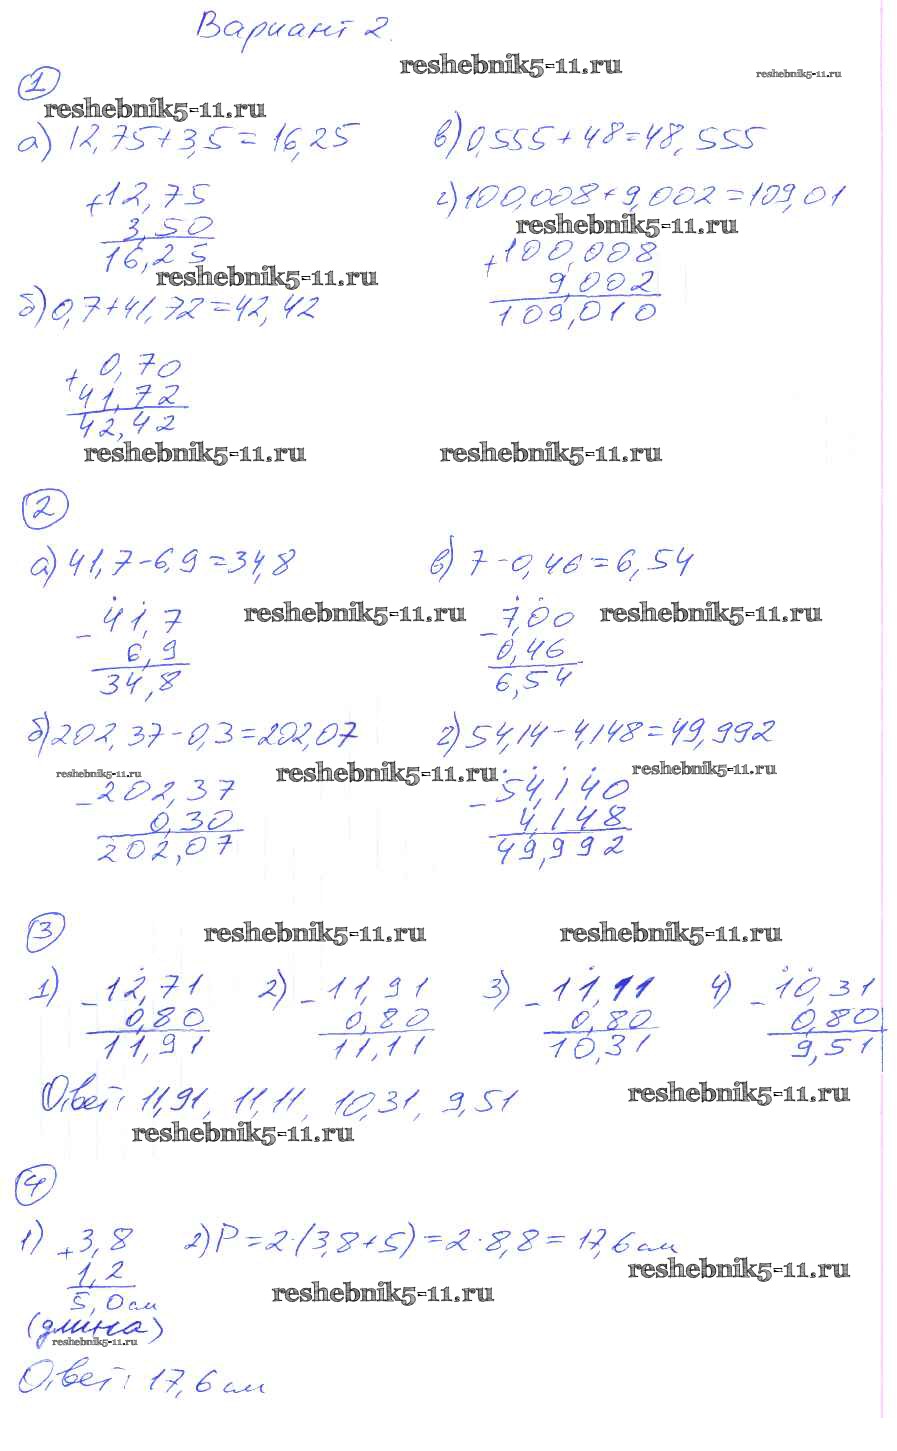 Вариант 2.
reshebnik5-11.ru
reshebnik5-11.ru
1
reshebnik5-11.ru
а) 12,75+3,5=16,25
в) 0,555+48=48,555
+12,75
3,50
16,25
г) 100,008+9,002=109,01
reshebnik5-11.ru
+100,008
9,002
109,010
reshebnik5-11.ru
б) 0,7+41,72=42,42
+0,70
41,72
42,42
reshebnik5-11.ru
reshebnik5-11.ru
2
а) 41,7-6,9=34,8
в) 7-0,46=6,54
-41,7
6,9
34,8
reshebnik5-11.ru
-7,00
0,46
6,54
reshebnik5-11.ru
б) 202,37-0,3=202,07
г) 54,14-4,148=49,992
reshebnik5-11.ru
-202,37
0,30
202,07
reshebnik5-11.ru
-54,140
4,148
49,992
reshebnik5-11.ru
3
reshebnik5-11.ru
reshebnik5-11.ru
1) -12,71
0,80
11,91
2) -11,91
0,80
11,11
3) -11,11
0,80
10,31
4) -10,31
0,80
9,51
Ответ: 11,91, 11,11, 10,31, 9,51
reshebnik5-11.ru
reshebnik5-11.ru
4
1) +3,8
1,2
5,0 см
(длина)
2) P=2·(3,8+5)=2·8,8=17,6 см
reshebnik5-11.ru
reshebnik5-11.ru
reshebnik5-11.ru
Ответ: 17,6 см